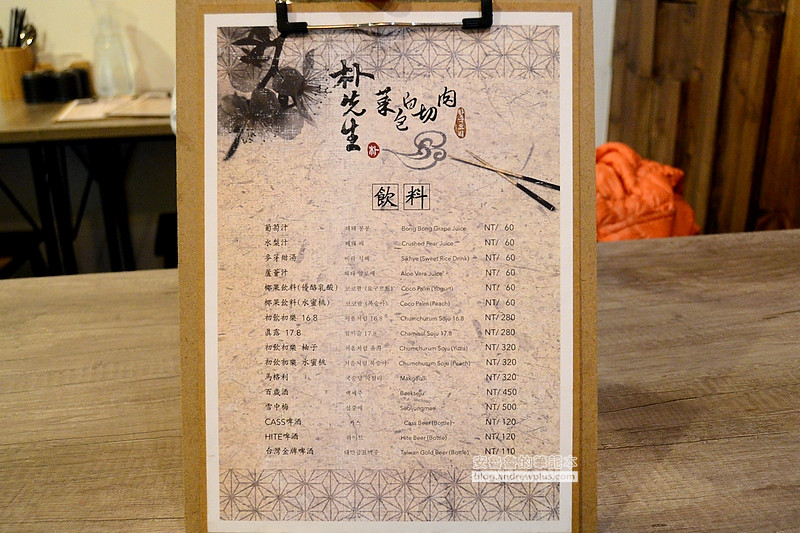 朴先生
菜包白切肉
朴
飲料
葡萄汁 해태 봉봉 Bong Bong Grape Juice NT/ 60
水梨汁 해태 배 Crushed Pear Juice NT/ 60
麥芽甜湯 비락 식혜 Sikhye (Sweet Rice Drink) NT/ 60
蘆薈汁 해태 알로에 Aloe Vera Juice NT/ 60
椰果飲料(優酪乳酸) 코코팜 (요구르트) Coco Palm (Yogurt) NT/ 60
椰果飲料(水蜜桃) 코코팜 (복숭아) Coco Palm (Peach) NT/ 60
初飲初樂 16.8 처음처럼 16.8 Chumchurum Soju 16.8 NT/ 280
真露 17.8 참이슬 17.8 Chamisul Soju 17.8 NT/ 280
初飲初樂 柚子 처음처럼 유자 Chumchurum Soju (Yuzu) NT/ 320
初飲初樂 水蜜桃 처음처럼 복숭아 Chumchurum Soju (Peach) NT/ 320
馬格利 국순당 막걸리 Makgeolli NT/ 320
百歲酒 백세주 Baekseju NT/ 450
雪中梅 설중매 Seoljungmae NT/ 500
CASS啤酒 카스 Cass Beer (Bottle) NT/ 120
HITE啤酒 하이트 Hite Beer (Bottle) NT/ 120
台灣金牌啤酒 대만골드맥주 Taiwan Gold Beer (Bottle) NT/ 110
安魯魯的筆記本
blog.andrewplus.com